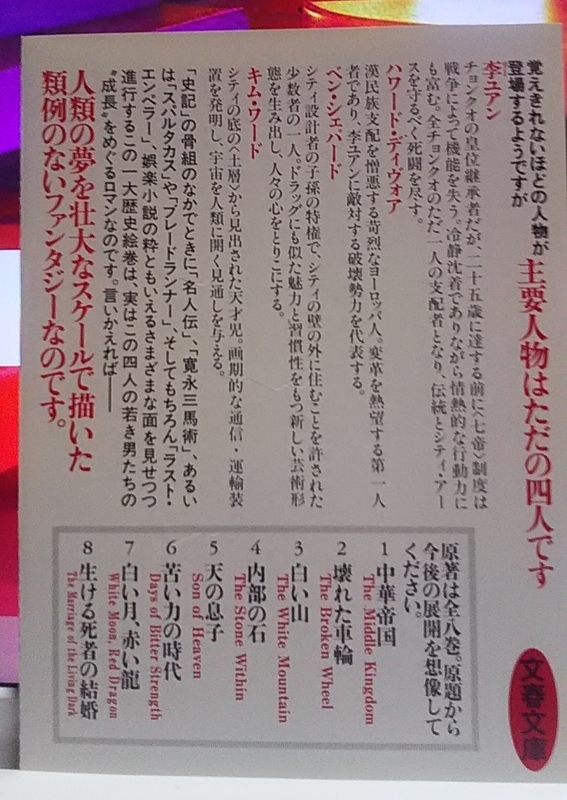 覚えきれないほどの人物が
登場するようですが
主要人物はただの四人です
李ユアン
チョンクオの皇位継承者だが、二十五歳に達する前に〈七帝〉制度は
戦争によって機能を失う。冷静沈着でありながら情熱的な行動力に
も富む。全チョンクオのただ一人の支配者となり、伝統とシティ・アー
スを守るべく死闘を尽す。
ハワード・ディヴォア
漢民族支配を憎悪する苛烈なヨーロッパ人。変革を熱望する第一人
者であり、李ユアンに敵対する破壊勢力を代表する。
ベン・シェパード
シティ設計者の子孫の特権で、シティの壁の外に住むことを許された
少数者の一人。ドラッグにも似た魅力と習慣性をもつ新しい芸術形
態を生み出し、人々の心をとりこにする。
キム・ワード
シティの底の〈土層〉から見出された天才児。画期的な通信・運輸装
置を発明し、宇宙を人類に開く見通しを与える。
「史記」の骨組のなかでときに「名人伝」、「寛永三馬術」、あるい
は「スパルタカス」や「ブレードランナー」、そしてもちろん「ラスト・
エンペラー」、娯楽小説の粋ともいえるさまざまな面を見せつつ
進行するこの一大歴史絵巻は、実はこの四人の若き男たちの
〝成長〟をめぐるロマンなのです。言いかえれば――
人類の夢を壮大なスケールで描いた
類例のないファンタジーなのです。
原著は全八巻。原題から
今後の展開を想像して
ください。
1 中華帝国
The Middle Kingdom
2 壊れた車輪
The Broken Wheel
3 白い山
The White Mountain
4 内部の石
The Stone Within
5 天の息子
Son of Heaven
6 苦い力の時代
Days of Bitter Strength
7 白い月、赤い龍
White Moon, Red Dragon
8 生ける死者の結婚
The Marriage of the Living Dark
文春文庫